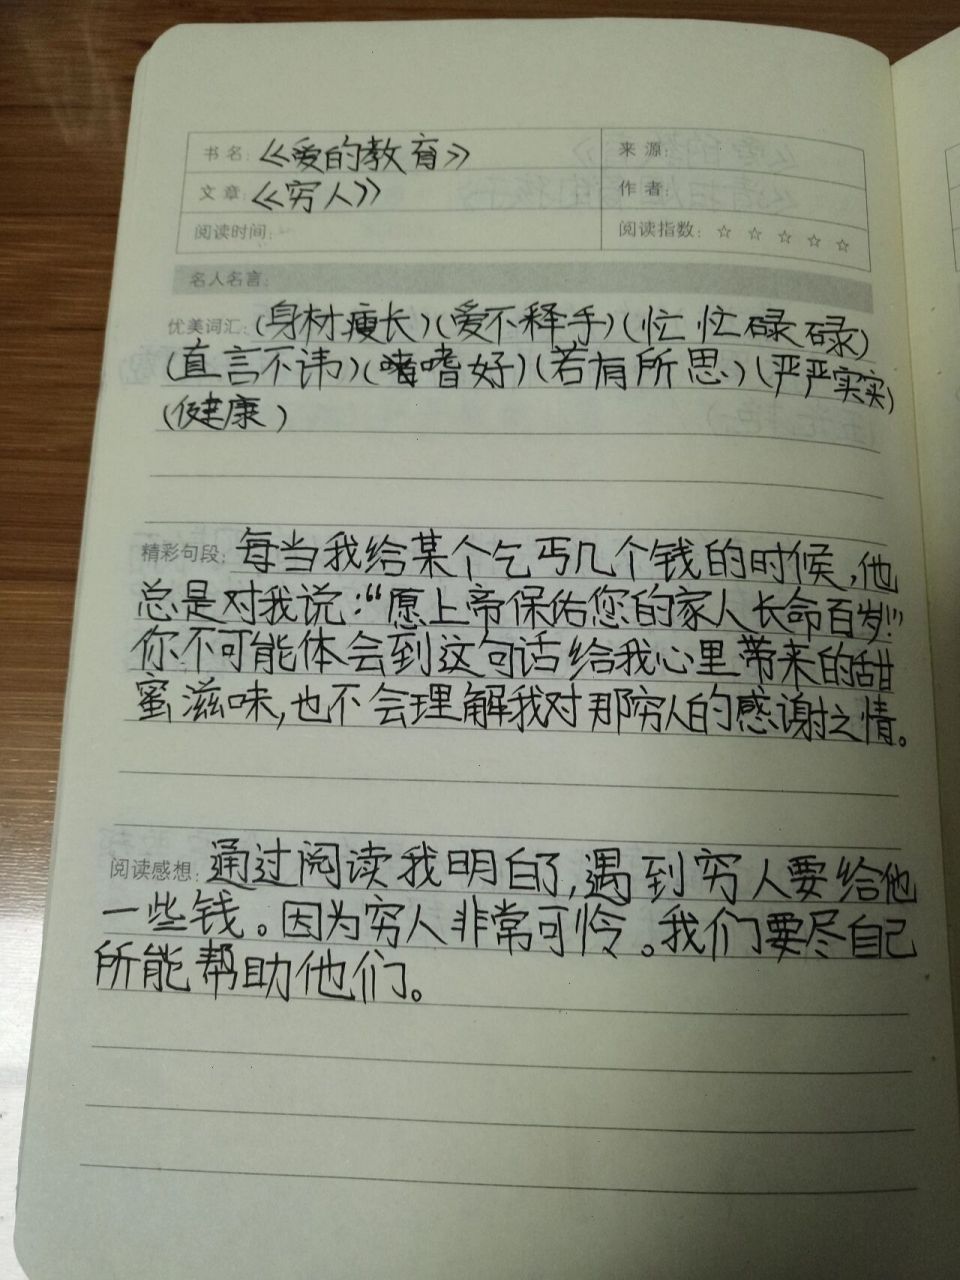 书名:《爱的教育》 来源:
文章:《穷人》 作者:
阅读时间: 阅读指数:☆ ☆ ☆ ☆ ☆
名人名言:
优美词汇:(身材瘦长)(爱不释手)(忙忙碌碌)
(直言不讳)(嗜好)(若有所思)(严严实实)
(健康)
精彩句段:每当我给某个乞丐几个钱的时候,他
总是对我说:“愿上帝保佑您的家人长命百岁!”
你不可能体会到这句话给我心里带来的甜
蜜滋味,也不会理解我对那穷人的感谢之情。
阅读感想:通过阅读我明白了,遇到穷人要给他
一些钱。因为穷人非常可怜。我们要尽自己
所能帮助他们。